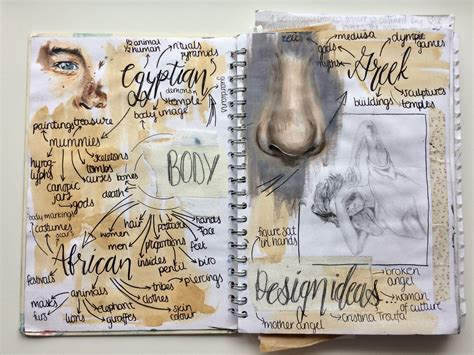 animal
human
rituals
pyramids
Egyptian
demons
guardians
temple
body image
paintings
treasure
mummies
hyrog-
lyphs
skeletons
tombs
curses
bones
canopic
jars
death
gods
BODY
body markings
costumes
scars
hair
postures
hands
face
women
proportions
feet
men
insides
biro
African
pencil
tribes
piercings
festivals
animals
clothes
masks
elephant
skin
colour
furs
lions
giraffes
zeus
medusa
olympic
games
gods
myths
Greek
sculptures
temples
buildings
figure sat
in hands
Design ideas
broken
angel
woman
of culture
mother angel